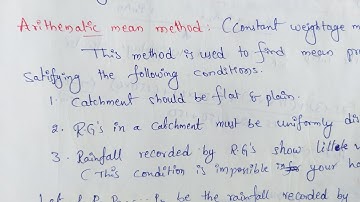 Arithematic mean method. (Constant weightage m
This method is used to find mean pr
satisfying the following conditions.
1. Catchment should be flat & plain.
2. R.G's in a catchment must be uniformly dis
3. Rainfall recorded by R.G's show little v
(This condition is impossible for your ha
be the rainfall recorded by